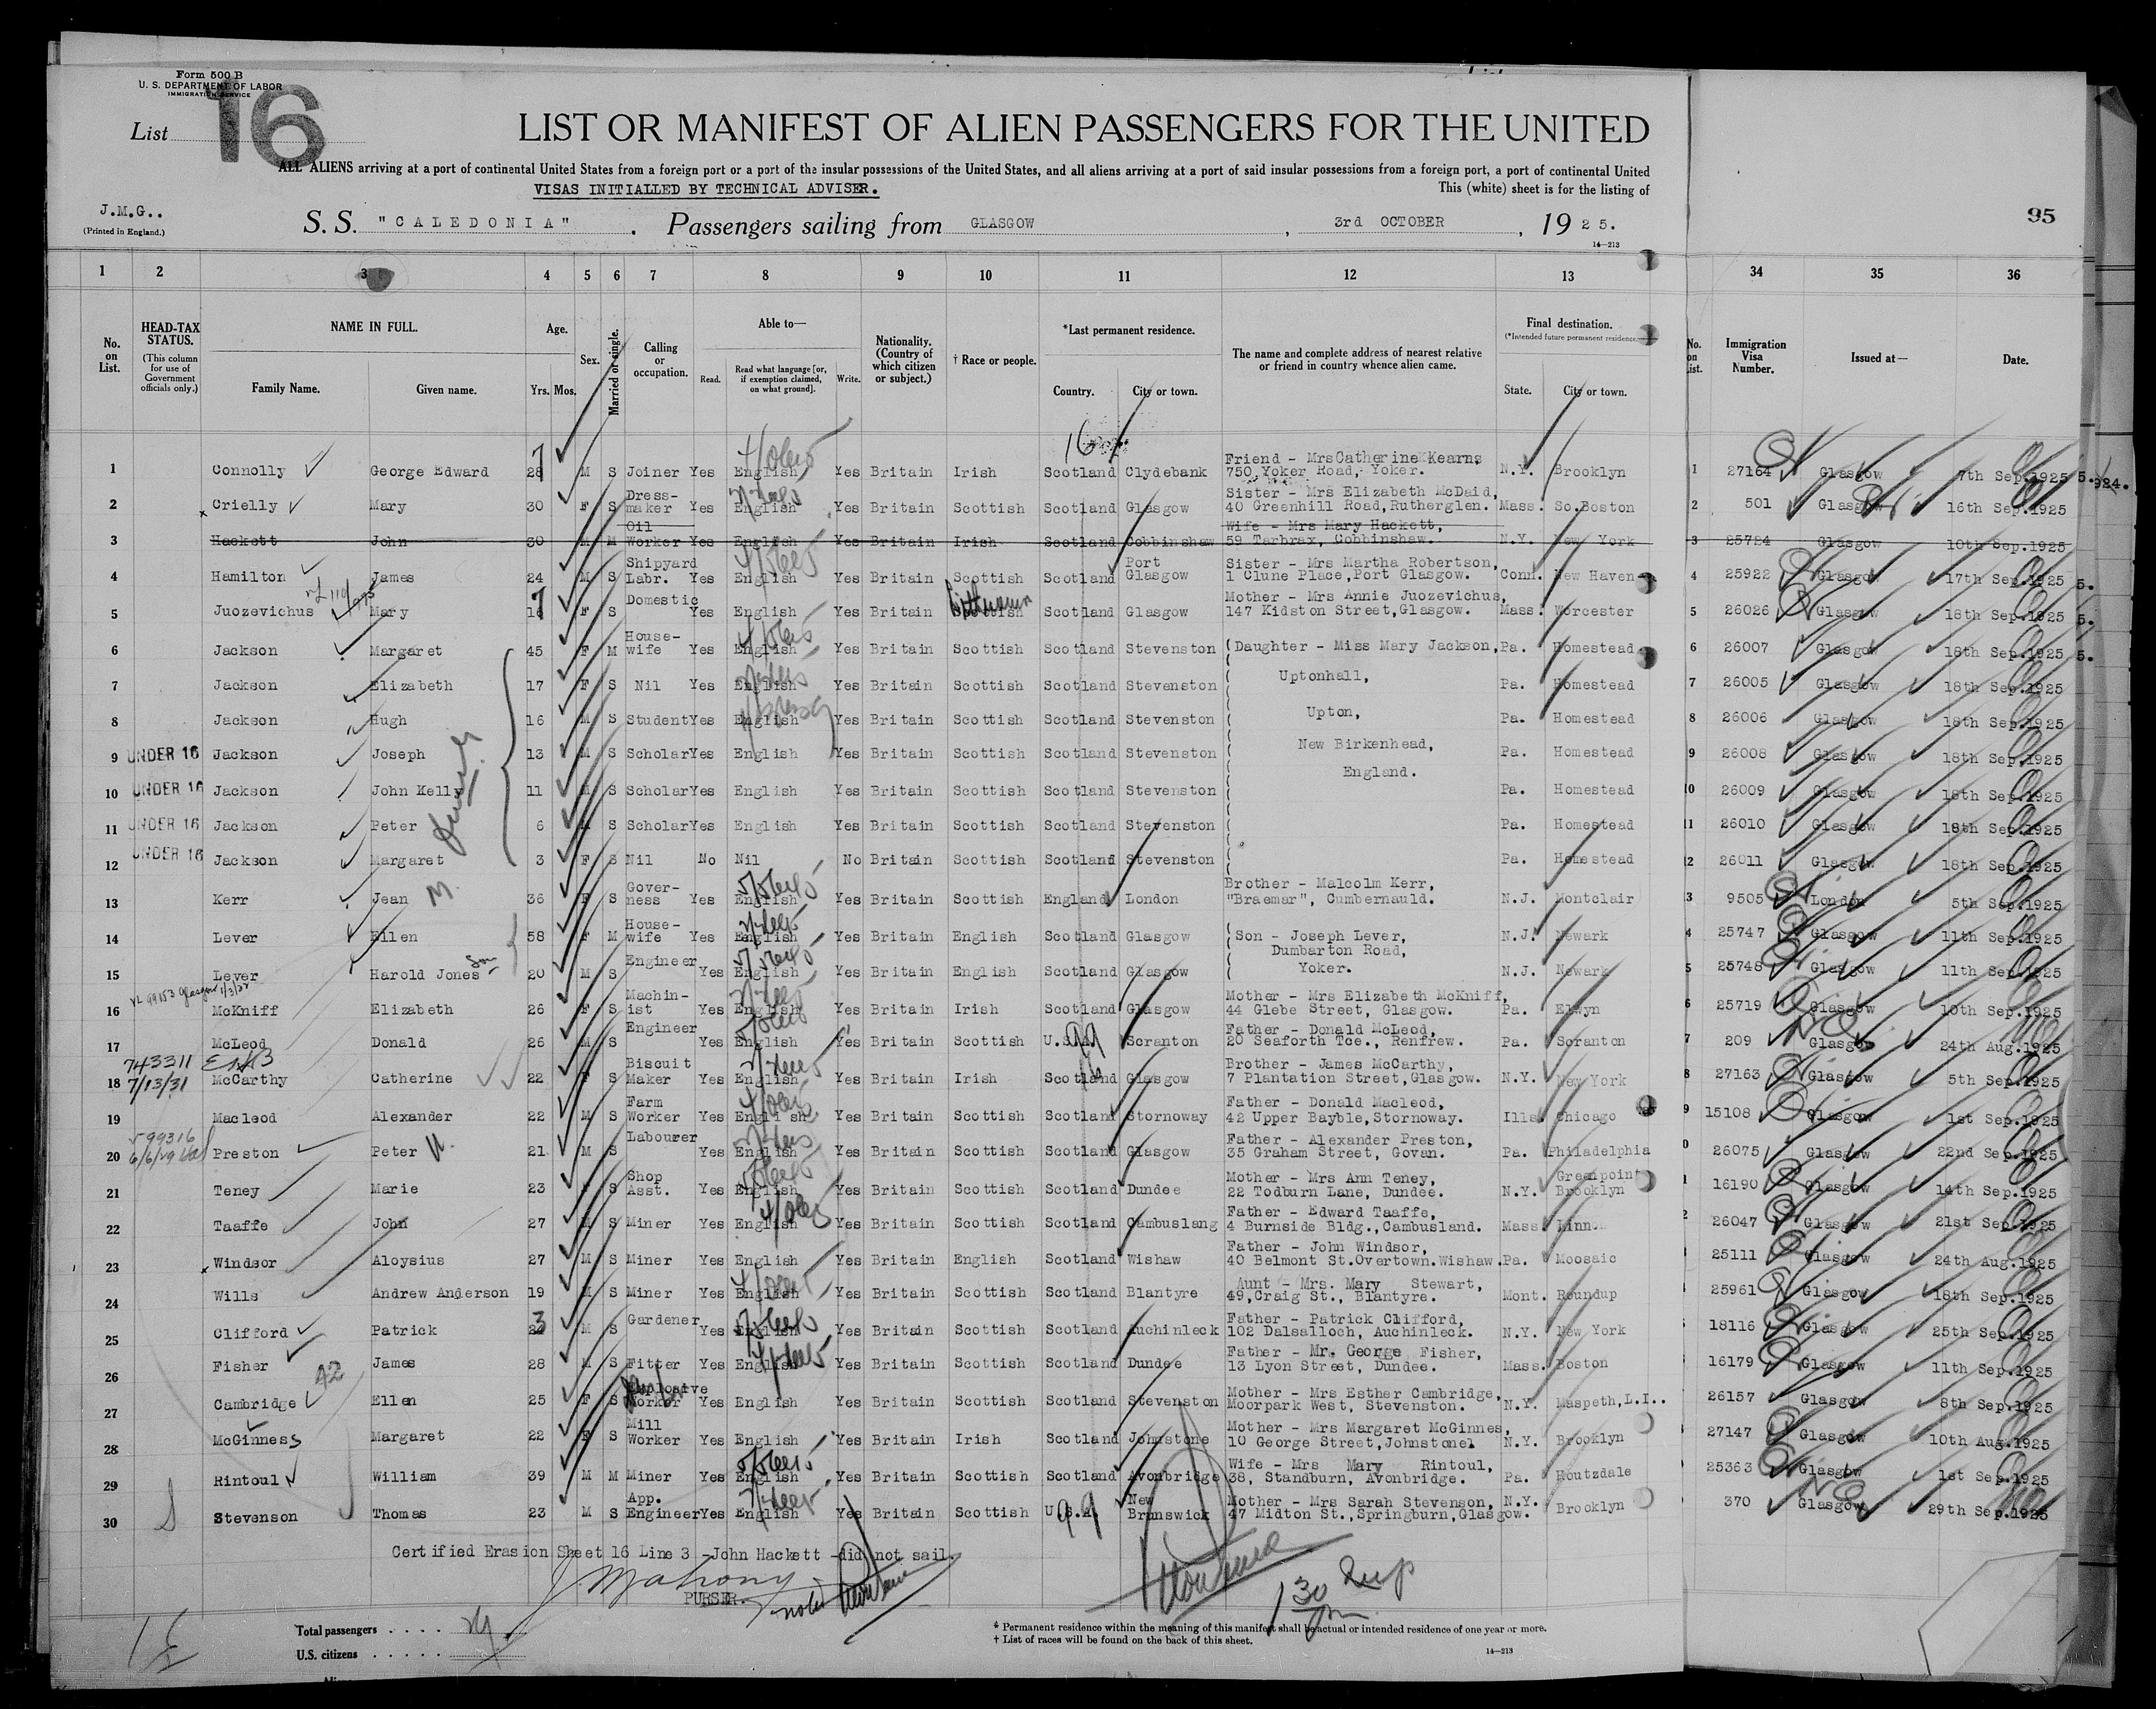 Form 500 B
U. S. DEPARTMENT OF LABOR
IMMIGRATION SERVICE
List 16
LIST OR MANIFEST OF ALIEN PASSENGERS FOR THE UNITED
ALL ALIENS arriving at a port of continental United States from a foreign port or a port of the insular possessions of the United States, and all aliens arriving at a port of said insular possessions from a foreign port, a port of continental United
VISAS INITIALLED BY TECHNICAL ADVISER. This (white) sheet is for the listing of
J.M.G..
(Printed in England.)
S. S. "CALEDONIA". Passengers sailing from GLASGOW, 3rd OCTOBER, 1925.
14—213
95
1 2 3 4 5 6 7 8 9 10 11 12 13 34 35 36
No. on List. HEAD-TAX STATUS. (This column for use of Government officials only.) NAME IN FULL. Family Name. Given name. Age. Yrs. Mos. Sex. Married or single. Calling or occupation. Able to— Read. Read what language [or, if exemption claimed, on what ground]. Write. Nationality. (Country of which citizen or subject.) † Race or people. *Last permanent residence. Country. City or town. The name and complete address of nearest relative or friend in country whence alien came. Final destination. (*Intended future permanent residence.) State. City or town. No. on List. Immigration Visa Number. Issued at— Date.
1 Connolly George Edward 28 M S Joiner Yes English Yes Britain Irish Scotland Clydebank Friend - Mrs Catherine Kearns, 750 Yoker Road, Yoker. N.Y. Brooklyn 1 27164 Glasgow 7th Sep.1925
2 Crielly Mary 30 F S Dress-maker Yes English Yes Britain Scottish Scotland Glasgow Sister - Mrs Elizabeth McDaid, 40 Greenhill Road,Rutherglen. Mass. So.Boston 2 501 Glasgow 16th Sep.1925
3 Hackett John 30 M M Oil Worker Yes English Yes Britain Irish Scotland Cobbinshaw Wife - Mrs Mary Hackett, 59 Tarbrax, Cobbinshaw. N.Y. New York 3 25724 Glasgow 10th Sep.1925
4 Hamilton James 24 M S Shipyard Labr. Yes English Yes Britain Scottish Scotland Port Glasgow Sister - Mrs Martha Robertson, 1 Clune Place,Port Glasgow. Conn. New Haven 4 25922 Glasgow 17th Sep.1925
5 Juozevichus Mary 16 F S Domestic Yes English Yes Britain Lithuanian Scotland Glasgow Mother - Mrs Annie Juozevichus, 147 Kidston Street,Glasgow. Mass. Worcester 5 26026 Glasgow 18th Sep.1925
6 Jackson Margaret 45 F M House-wife Yes English Yes Britain Scottish Scotland Stevenston (Daughter - Miss Mary Jackson, Pa. Homestead 6 26007 Glasgow 18th Sep.1925
7 Jackson Elizabeth 17 F S Nil Yes English Yes Britain Scottish Scotland Stevenston Uptonhall, Pa. Homestead 7 26005 Glasgow 18th Sep.1925
8 Jackson Hugh 16 M S Student Yes English Yes Britain Scottish Scotland Stevenston Upton, Pa. Homestead 8 26006 Glasgow 18th Sep.1925
9 UNDER 16 Jackson Joseph 13 M S Scholar Yes English Yes Britain Scottish Scotland Stevenston New Birkenhead, Pa. Homestead 9 26008 Glasgow 18th Sep.1925
England.
10 UNDER 16 Jackson John Kelly 11 M S Scholar Yes English Yes Britain Scottish Scotland Stevenston Pa. Homestead 10 26009 Glasgow 18th Sep.1925
11 UNDER 16 Jackson Peter 6 M S Scholar Yes English Yes Britain Scottish Scotland Stevenston Pa. Homestead 11 26010 Glasgow 18th Sep.1925
12 UNDER 16 Jackson Margaret 3 F S Nil No Nil No Britain Scottish Scotland Stevenston Pa. Homestead 12 26011 Glasgow 18th Sep.1925
13 Kerr Jean 36 F S Gover-ness Yes English Yes Britain Scottish England London Brother - Malcolm Kerr, "Braemar", Cumbernauld. N.J. Montclair 3 9505 London 5th Sep.1925
14 Lever Ellen 58 F M House-wife Yes English Yes Britain English Scotland Glasgow (Son - Joseph Lever, Dumbarton Road, N.J. Newark 4 25747 Glasgow 11th Sep.1925
15 Lever Harold Jones Son 20 M S Engineer Yes English Yes Britain English Scotland Glasgow Yoker. N.J. Newark 5 25748 Glasgow 11th Sep.1925
16 McKniff Elizabeth 26 F S Machin-ist Yes English Yes Britain Irish Scotland Glasgow Mother - Mrs Elizabeth McKniff, 44 Glebe Street, Glasgow. Pa. Elwyn 6 25719 Glasgow 10th Sep.1925
17 McLeod Donald 26 M S Engineer Yes English Yes Britain Scottish U.S.A. Scranton Father - Donald McLeod, 20 Seaforth Tce., Renfrew. Pa. Scranton 7 209 Glasgow 24th Aug.1925
743311
7/13/31
18 McCarthy Catherine 22 F S Biscuit Maker Yes English Yes Britain Irish Scotland Glasgow Brother - James McCarthy, 7 Plantation Street,Glasgow. N.Y. New York 8 27163 Glasgow 5th Sep.1925
19 Macleod Alexander 22 M S Farm Worker Yes English Yes Britain Scottish Scotland Stornoway Father - Donald Macleod, 42 Upper Bayble,Stornoway. Ills. Chicago 9 15108 Glasgow 1st Sep.1925
20 Preston Peter 21 M S Labourer Yes English Yes Britain Scottish Scotland Glasgow Father - Alexander Preston, 35 Graham Street, Govan. Pa. Philadelphia 0 26075 Glasgow 22nd Sep.1925
21 Teney Marie 23 F S Shop Asst. Yes English Yes Britain Scottish Scotland Dundee Mother - Mrs Ann Teney, 22 Todburn Lane, Dundee. N.Y. Greenpoint Brooklyn 1 16190 Glasgow 14th Sep.1925
22 Taaffe John 27 M S Miner Yes English Yes Britain Scottish Scotland Cambuslang Father - Edward Taaffe, 4 Burnside Bldg.,Cambusland. Mass. Linn. 2 26047 Glasgow 21st Sep.1925
23 Windsor Aloysius 27 M S Miner Yes English Yes Britain English Scotland Wishaw Father - John Windsor, 40 Belmont St.Overtown.Wishaw. Pa. Moosaic 25111 Glasgow 24th Aug.1925
24 Wills Andrew Anderson 19 M S Miner Yes English Yes Britain Scottish Scotland Blantyre Aunt - Mrs. Mary Stewart, 49,Craig St., Blantyre. Mont. Roundup 25961 Glasgow 18th Sep.1925
25 Clifford Patrick M S Gardener Yes English Yes Britain Scottish Scotland Auchinleck Father - Patrick Clifford, 102 Dalsalloch, Auchinleck. N.Y. New York 18116 Glasgow 25th Sep.1925
26 Fisher James 28 M S Fitter Yes English Yes Britain Scottish Scotland Dundee Father - Mr. George Fisher, 13 Lyon Street, Dundee. Mass. Boston 16179 Glasgow 11th Sep.1925
27 Cambridge Ellen 25 F S Explosive Worker Yes English Yes Britain Scottish Scotland Stevenston Mother - Mrs Esther Cambridge, Moorpark West, Stevenston. N.Y. Maspeth,L.I.. 26157 Glasgow 8th Sep.1925
28 McGinness Margaret 22 F S Mill Worker Yes English Yes Britain Irish Scotland Johnstone Mother - Mrs Margaret McGinnes, 10 George Street,Johnstone N.Y. Brooklyn 27147 Glasgow 10th Aug.1925
29 Rintoul William 39 M M Miner Yes English Yes Britain Scottish Scotland Avonbridge Wife - Mrs Mary Rintoul, 38, Standburn, Avonbridge. Pa. Houtzdale 25363 Glasgow 1st Sep.1925
30 Stevenson Thomas 23 M S App. Engineer Yes English Yes Britain Scottish U.S.A. New Brunswick Mother - Mrs Sarah Stevenson, 47 Midton St.,Springburn,Glasgow. N.Y. Brooklyn 370 Glasgow 29th Sep.1925
Certified Erasion Sheet 16 Line 3 -John Hackett -did not sail.
J. Mahony
PURSER.
Total passengers . . . .
U.S. citizens . . . . .
* Permanent residence within the meaning of this manifest shall be actual or intended residence of one year or more.
† List of races will be found on the back of this sheet.
14—213